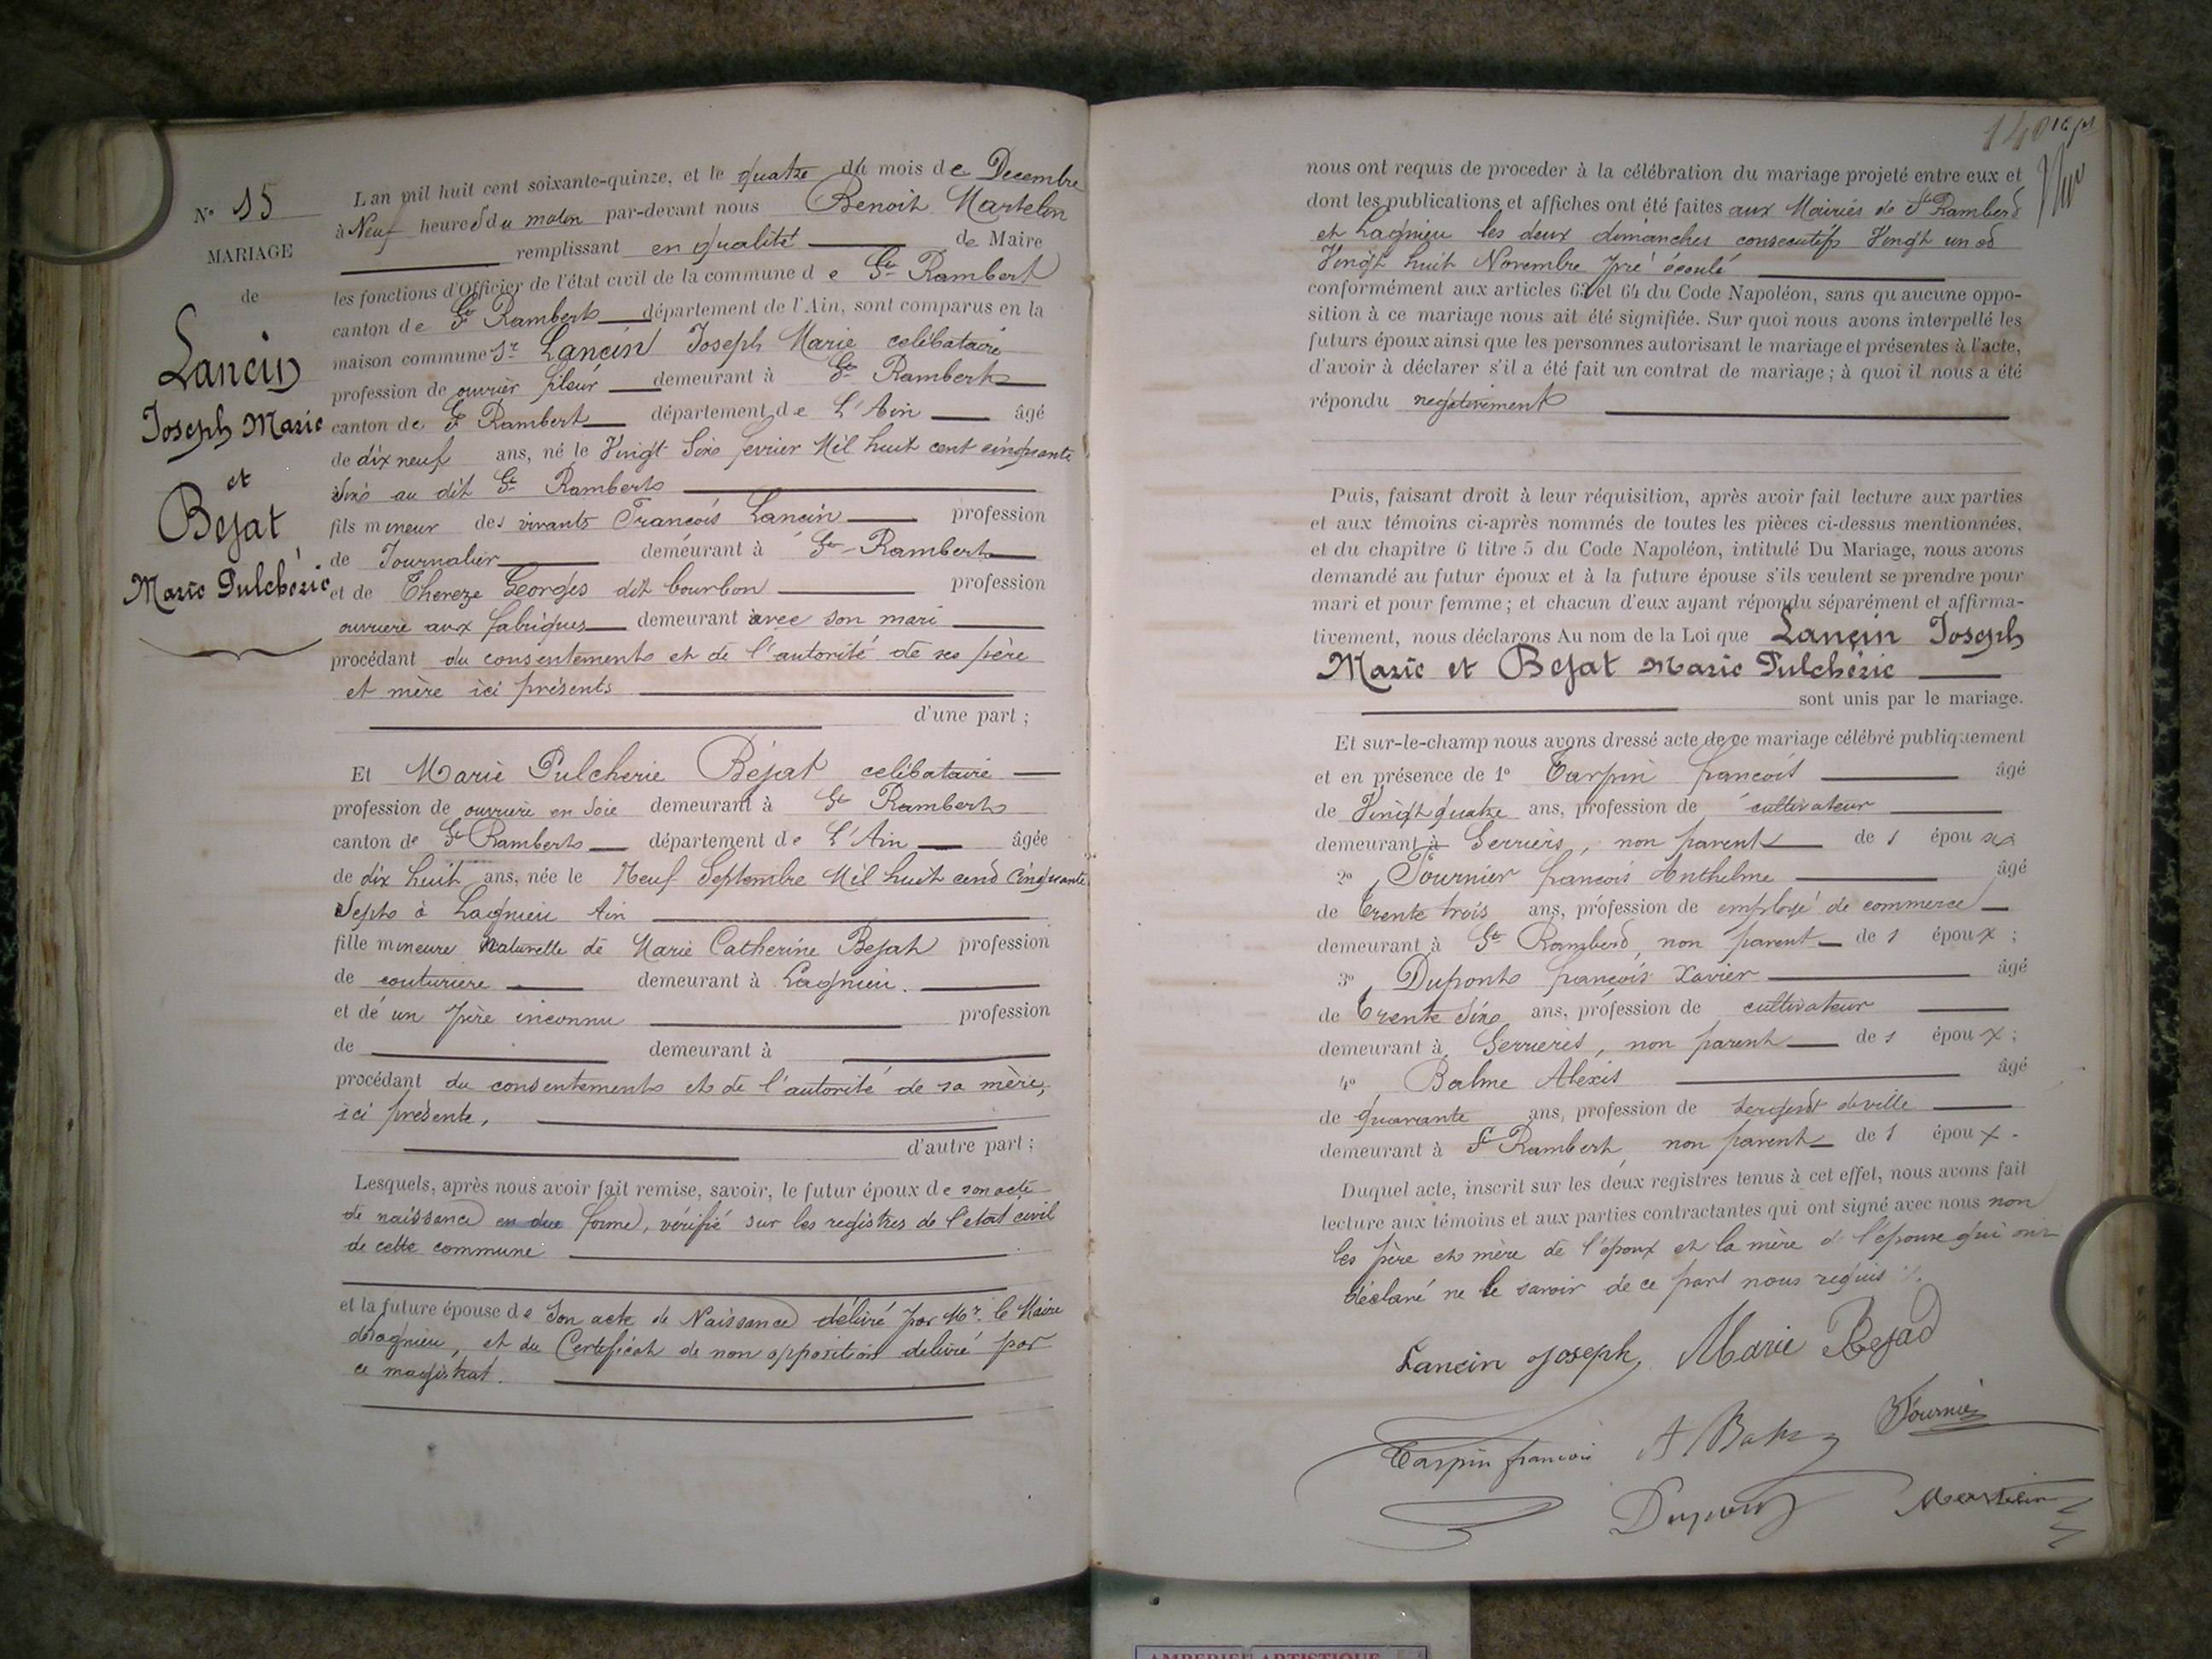 N° 15
MARIAGE
de
Lancin
Joseph Marie
et
Bejat
Marie Pulchérie
L an mil huit cent soixante-quinze, et le quatre du mois de Decembre
à Neuf heures du matin par-devant nous Benoit Martelin
remplissant en qualité de Maire
les fonctions d'Officier de l'état civil de la commune de St Rambert
canton de St Rambert département de l'Ain, sont comparus en la
maison commune Sr Lancin Joseph Marie celibataire
profession de ouvrier fileur demeurant à St Rambert
canton de St Rambert département de L'Ain âgé
de dix neuf ans, né le Vingt Six fevrier Mil huit cent cinquante
Six au dit St Rambert
fils mineur des vivants Francois Lancin profession
de Journalier demeurant à St Rambert
et de Thereze Georges dit bourbon profession
ouvriere aux fabriques demeurant avec son mari
procédant du consentement et de l'autorité de ses père
et mère ici présents
d'une part ;
Et Marie Pulcherie Bejat celibataire
profession de ouvriere en Soie demeurant à St Rambert
canton de St Rambert département de L'Ain âgée
de dix huit ans, née le Neuf Septembre Mil huit cent Cinquante
Sept à Lagnieu Ain
fille mineure Naturelle de Marie Catherine Bejat profession
de couturiere demeurant à Lagnieu.
et de un père inconnu profession
de demeurant à
procédant du consentement et de l'autorité de sa mère,
ici présente,
d'autre part ;
Lesquels, après nous avoir fait remise, savoir, le futur époux de son acte
de naissance en due forme, vérifié sur les registres de l'etat civil
de cette commune
et la future épouse de Son acte de Naissance délivré par Mr. le Maire
de Lagnieu, et du Certificat de non opposition delivré par
ce magistrat.
140
nous ont requis de proceder à la célébration du mariage projeté entre eux et
dont les publications et affiches ont été faites aux Mairies de St Rambert
et Lagnieu les deux dimanches consecutifs Vingt un et
Vingt huit Novembre pré écoulé
conformément aux articles 63 et 64 du Code Napoléon, sans qu aucune oppo-
sition à ce mariage nous ait été signifiée. Sur quoi nous avons interpellé les
futurs époux ainsi que les personnes autorisant le mariage et présentes à l'acte,
d'avoir à déclarer s'il a été fait un contrat de mariage ; à quoi il nous a été
répondu negativement
Puis, faisant droit à leur réquisition, après avoir fait lecture aux parties
et aux témoins ci-après nommés de toutes les pièces ci-dessus mentionnées,
et du chapitre 6 titre 5 du Code Napoléon, intitulé Du Mariage, nous avons
demandé au futur époux et à la future épouse s'ils veulent se prendre pour
mari et pour femme ; et chacun d'eux ayant répondu séparément et affirma-
tivement, nous déclarons Au nom de la Loi que Lancin Joseph
Marie et Bejat Marie Pulchérie
sont unis par le mariage.
Et sur-le-champ nous avons dressé acte de ce mariage célébré publiquement
et en présence de 1° Tarpin francois âgé
de Vingt quatre ans, profession de cultivateur
demeurant à Serrières, non parent des époux
2° Fournier francois Anthelme âgé
de Trente trois ans, profession de employé de commerce
demeurant à St Rambert, non parent des époux ;
3° Dupont francois Xavier âgé
de Trente Six ans, profession de cultivateur
demeurant à Serrieres, non parent des époux ;
4° Balme Alexis âgé
de quarante ans, profession de sergent de ville
demeurant à St Rambert, non parent des époux.
Duquel acte, inscrit sur les deux registres tenus à cet effet, nous avons fait
lecture aux témoins et aux parties contractantes qui ont signé avec nous non
les père et mère de l'époux et la mère d l'épouse qui ont
déclaré ne le savoir de ce part nous requis
Lancin Joseph, Marie Bejat
Tarpin francois A Balme Fournier
Dupont Martelin
AMBERIEU ARTISTIQUE